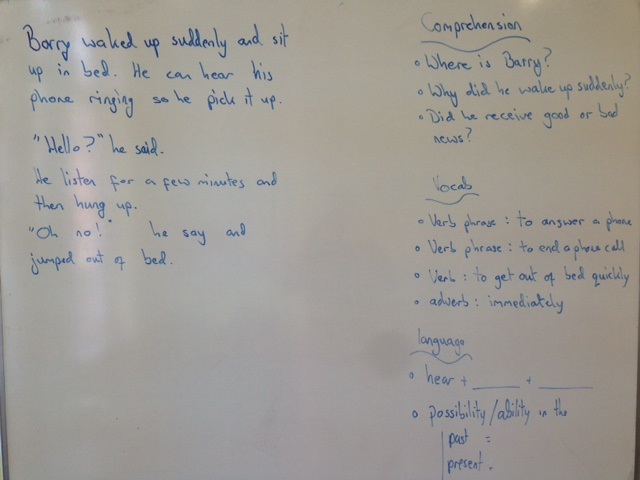 Barry waked up suddenly and sit
up in bed. He can hear his
phone ringing so he pick it up.
"Hello?" he said.
He listen for a few minutes and
then hung up.
"Oh no!" he say and
jumped out of bed.
Comprehension
• Where is Barry?
• Why did he wake up suddenly?
• Did he receive good or bad
news?
Vocab
• Verb phrase : to answer a phone
• Verb phrase : to end a phone call
• Verb : to get out of bed quickly
• adverb : immediately
language
• hear + ______ + ______
• possibility/ability in the
past =
present .